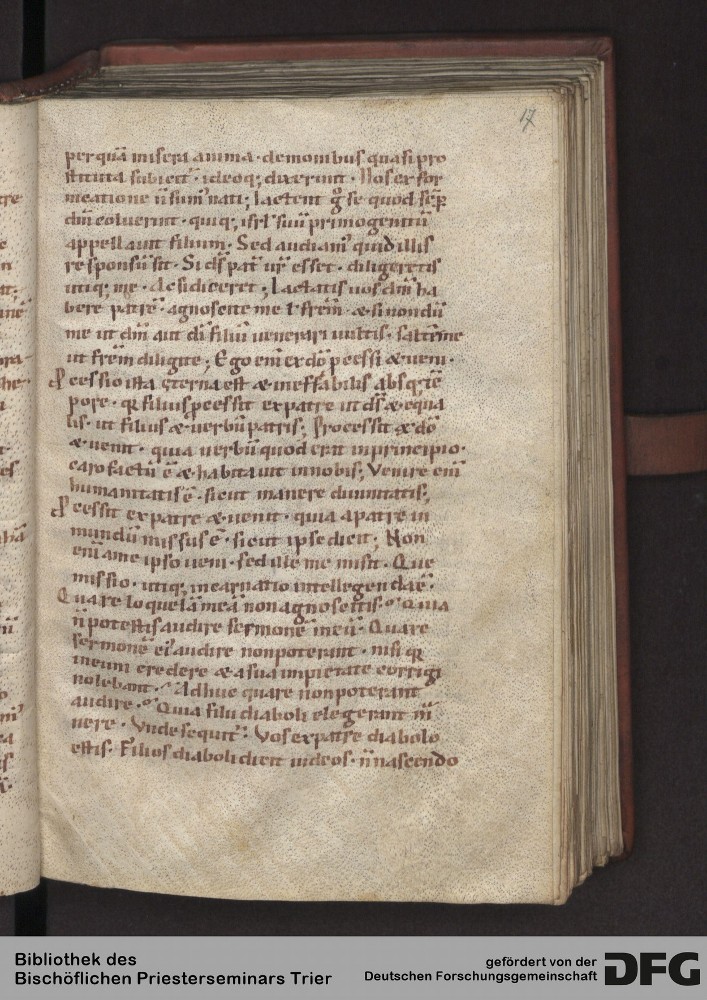 17
perquā misera anima · demonibus quasi pro
stituta subicit᷑ · ideoq; dixerunt · Nos ex for
nicatione n̄ sum᷑ nati; Iactent g̊ se quod sēp
dm̄ coluerint · quiq; isrl̓ suū primogenitū
appellauit filium · Sed audiam᷑ quid illis
responsū sit · Si ds̄ pat᷑ ur̄ esset · diligeretis
utiq; me · ac si diceret; Iactatis uos dm̄ ha
bere patrē · agnoscite me l̓ frēm · & si nondū
me ut dm̄ aut di filiū uenerari uultis · saltē me
ut frēm diligite; Ego eni ex dō pcessi & ueni ·
Pcessio ista ęterna est & ineffabilis absq; tē
pore · qr filius pcessit ex patre ut ds̄ & equa
lis · ut filius & uerbū patris; Processit & dō
& uenit · quia uerbū quod erat in principio ·
caro factū ē & habitauit in nobis; Venire eni
humanitatis ē · sicut manere diuinitatis;
Pcessit ex patre & uenit · quia a patre in
mundū missus ē · sicut ipse dicit; Non
eni a me ipso ueni · sed ille me misit · Que
missio · utiq; incarnatio intellegenda ē ·
Quare loquelā meā non agnoscitis · Quia
n̄ potestis audire sermonē meū · Quare
sermonē ei᷑ audire non poterant · nisi qr
ineum credere & a sua impietate corrigi
nolebant · Adhuc quare non poterant
audire · Quia filii diaboli elegerant
uere · Vnde sequit᷑ · Vos ex patre diabolo
estis · Filios diaboli dicit iudeos · n̄ nascendo
Bibliothek des
Bischöflichen Priesterseminars Trier
gefördert von der
Deutschen Forschungsgemeinschaft
DFG